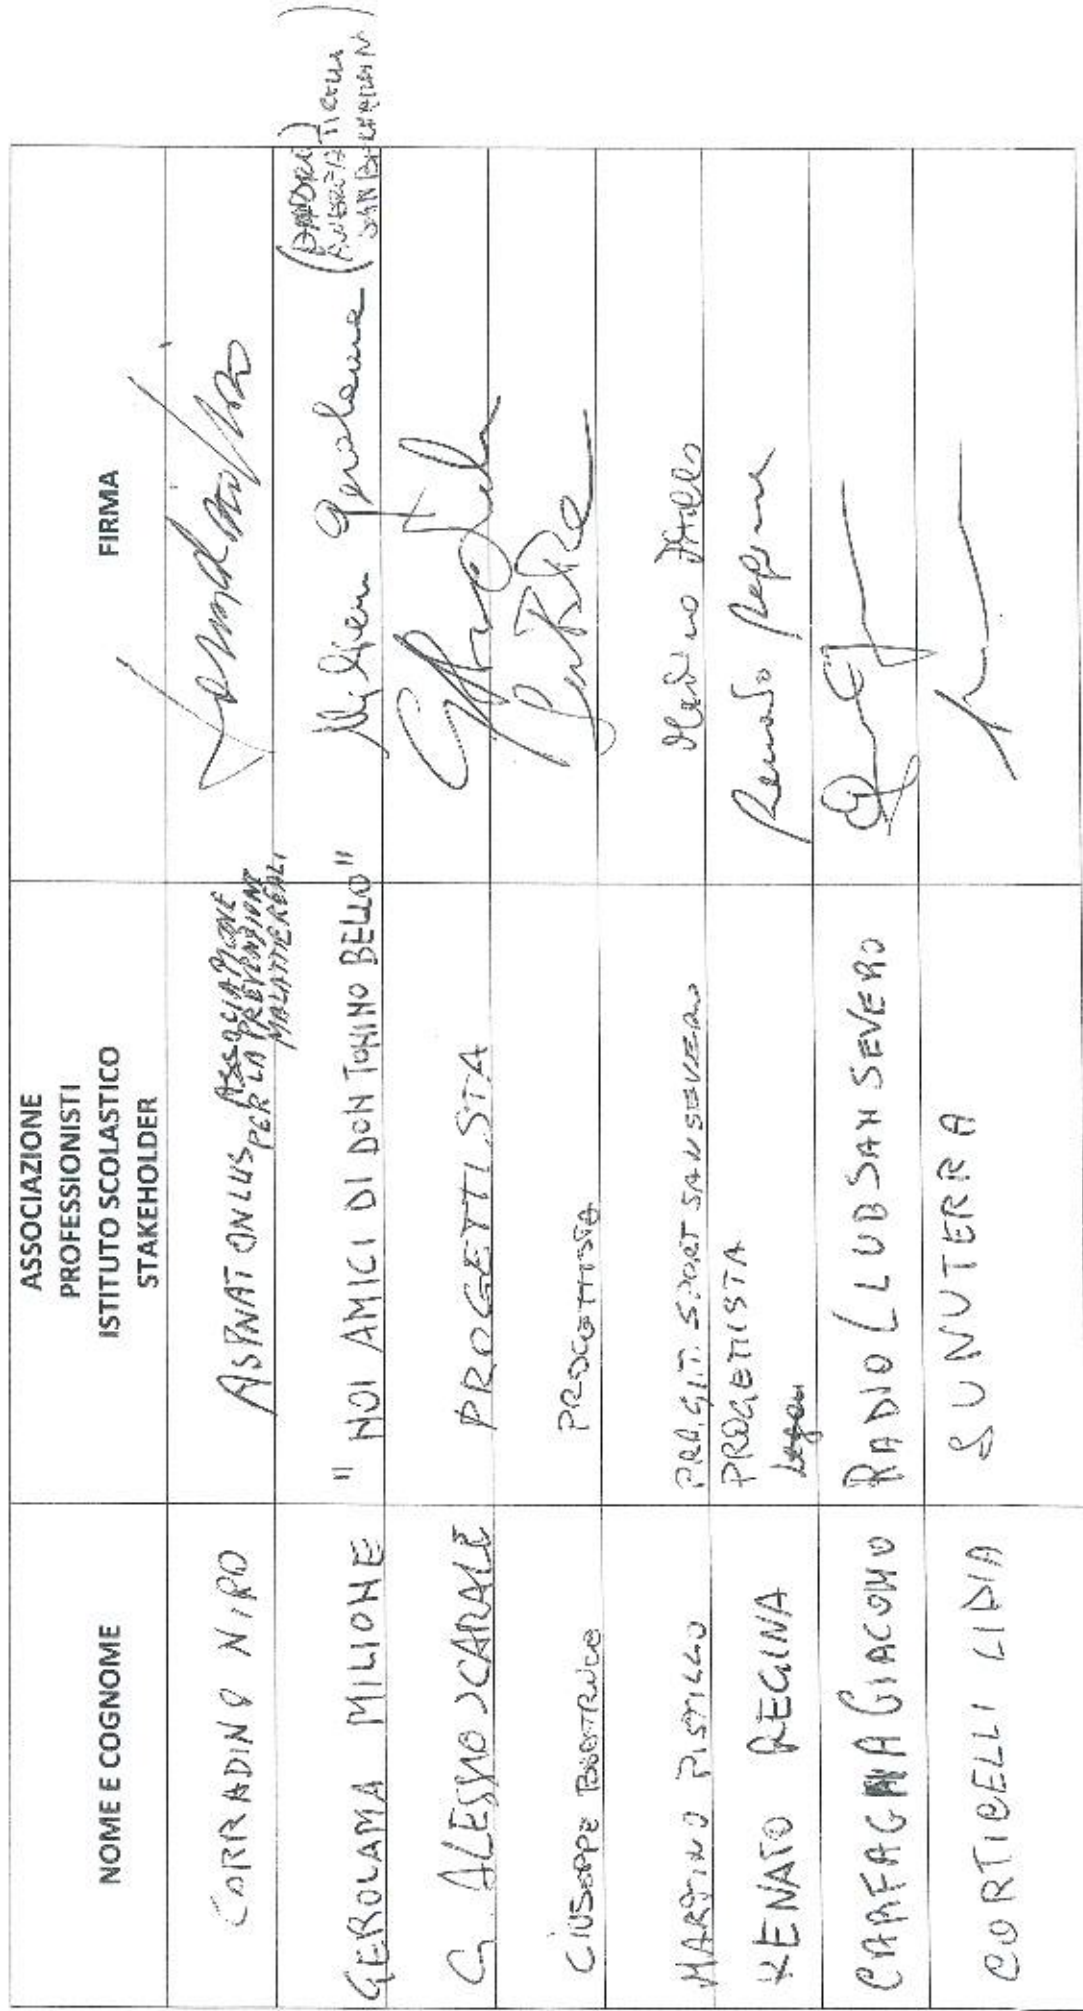 NOME E COGNOME
ASSOCIAZIONE
PROFESSIONISTI
ISTITUTO SCOLASTICO
STAKEHOLDER
FIRMA
CORRADINO NIRO
ASPNAT ONLUS ASSOCIAZIONE
PER LA PREVENZIONE
MALATTIE RENALI
GEROLAMA MILIONE
"NOI AMICI DI DON TONINO BELLO"
Milione Gerolama
G. ALESSIO SCARALE
PROGETTISTA
GIUSEPPE
PROGETTISTA
MARTINO PISTILLO
SPORT SAN SEVERO
Martino Pistillo
RENATO REGINA
PROGETTISTA
Renato Regina
CAFAGNA GIACOMO
RADIO CLUB SAN SEVERO
CORTICELLI LIDIA
SUNUTERRA